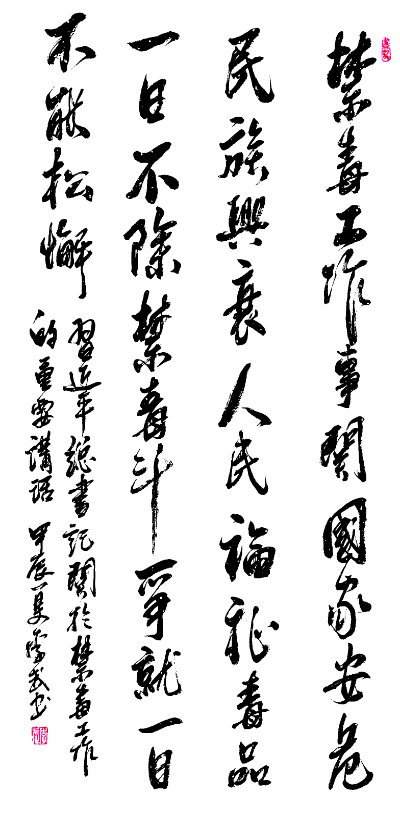 禁毒工作事關國家安危
民族興衰人民福祉毒品
一日不除禁毒斗爭就一日
不能松懈
習近平總書記關於禁毒工作
的重要講話 甲辰夏李武书